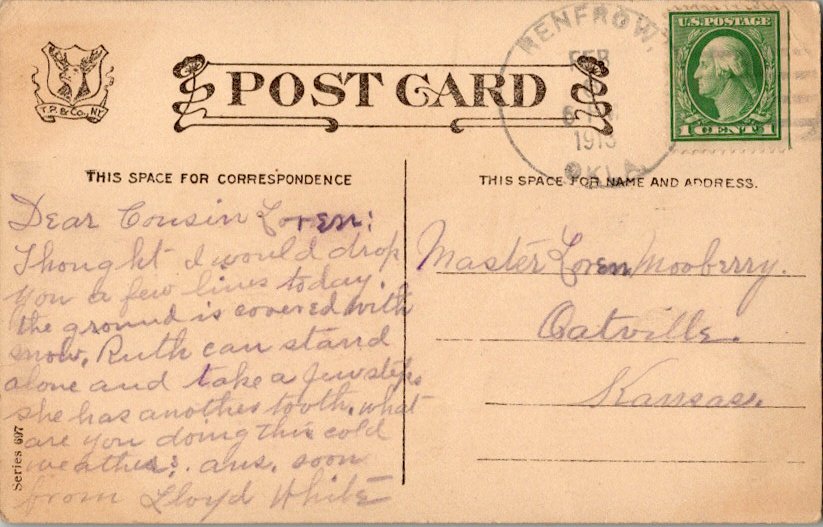 T.P. & Co. N.Y.
POST CARD
RENFROW,
FEB
1913
OKLA.
U.S. POSTAGE
1 CENT 1
THIS SPACE FOR CORRESPONDENCE
Dear Cousin Loren:
Thought I would drop
you a few lines today.
the ground is covered with
snow. Ruth can stand
alone and take a few steps
she has another tooth. what
are you doing this cold
weather? ans. soon
from Lloyd White
Series 697
THIS SPACE FOR NAME AND ADDRESS.
Master Loren Mooberry.
Oatville.
Kansas.